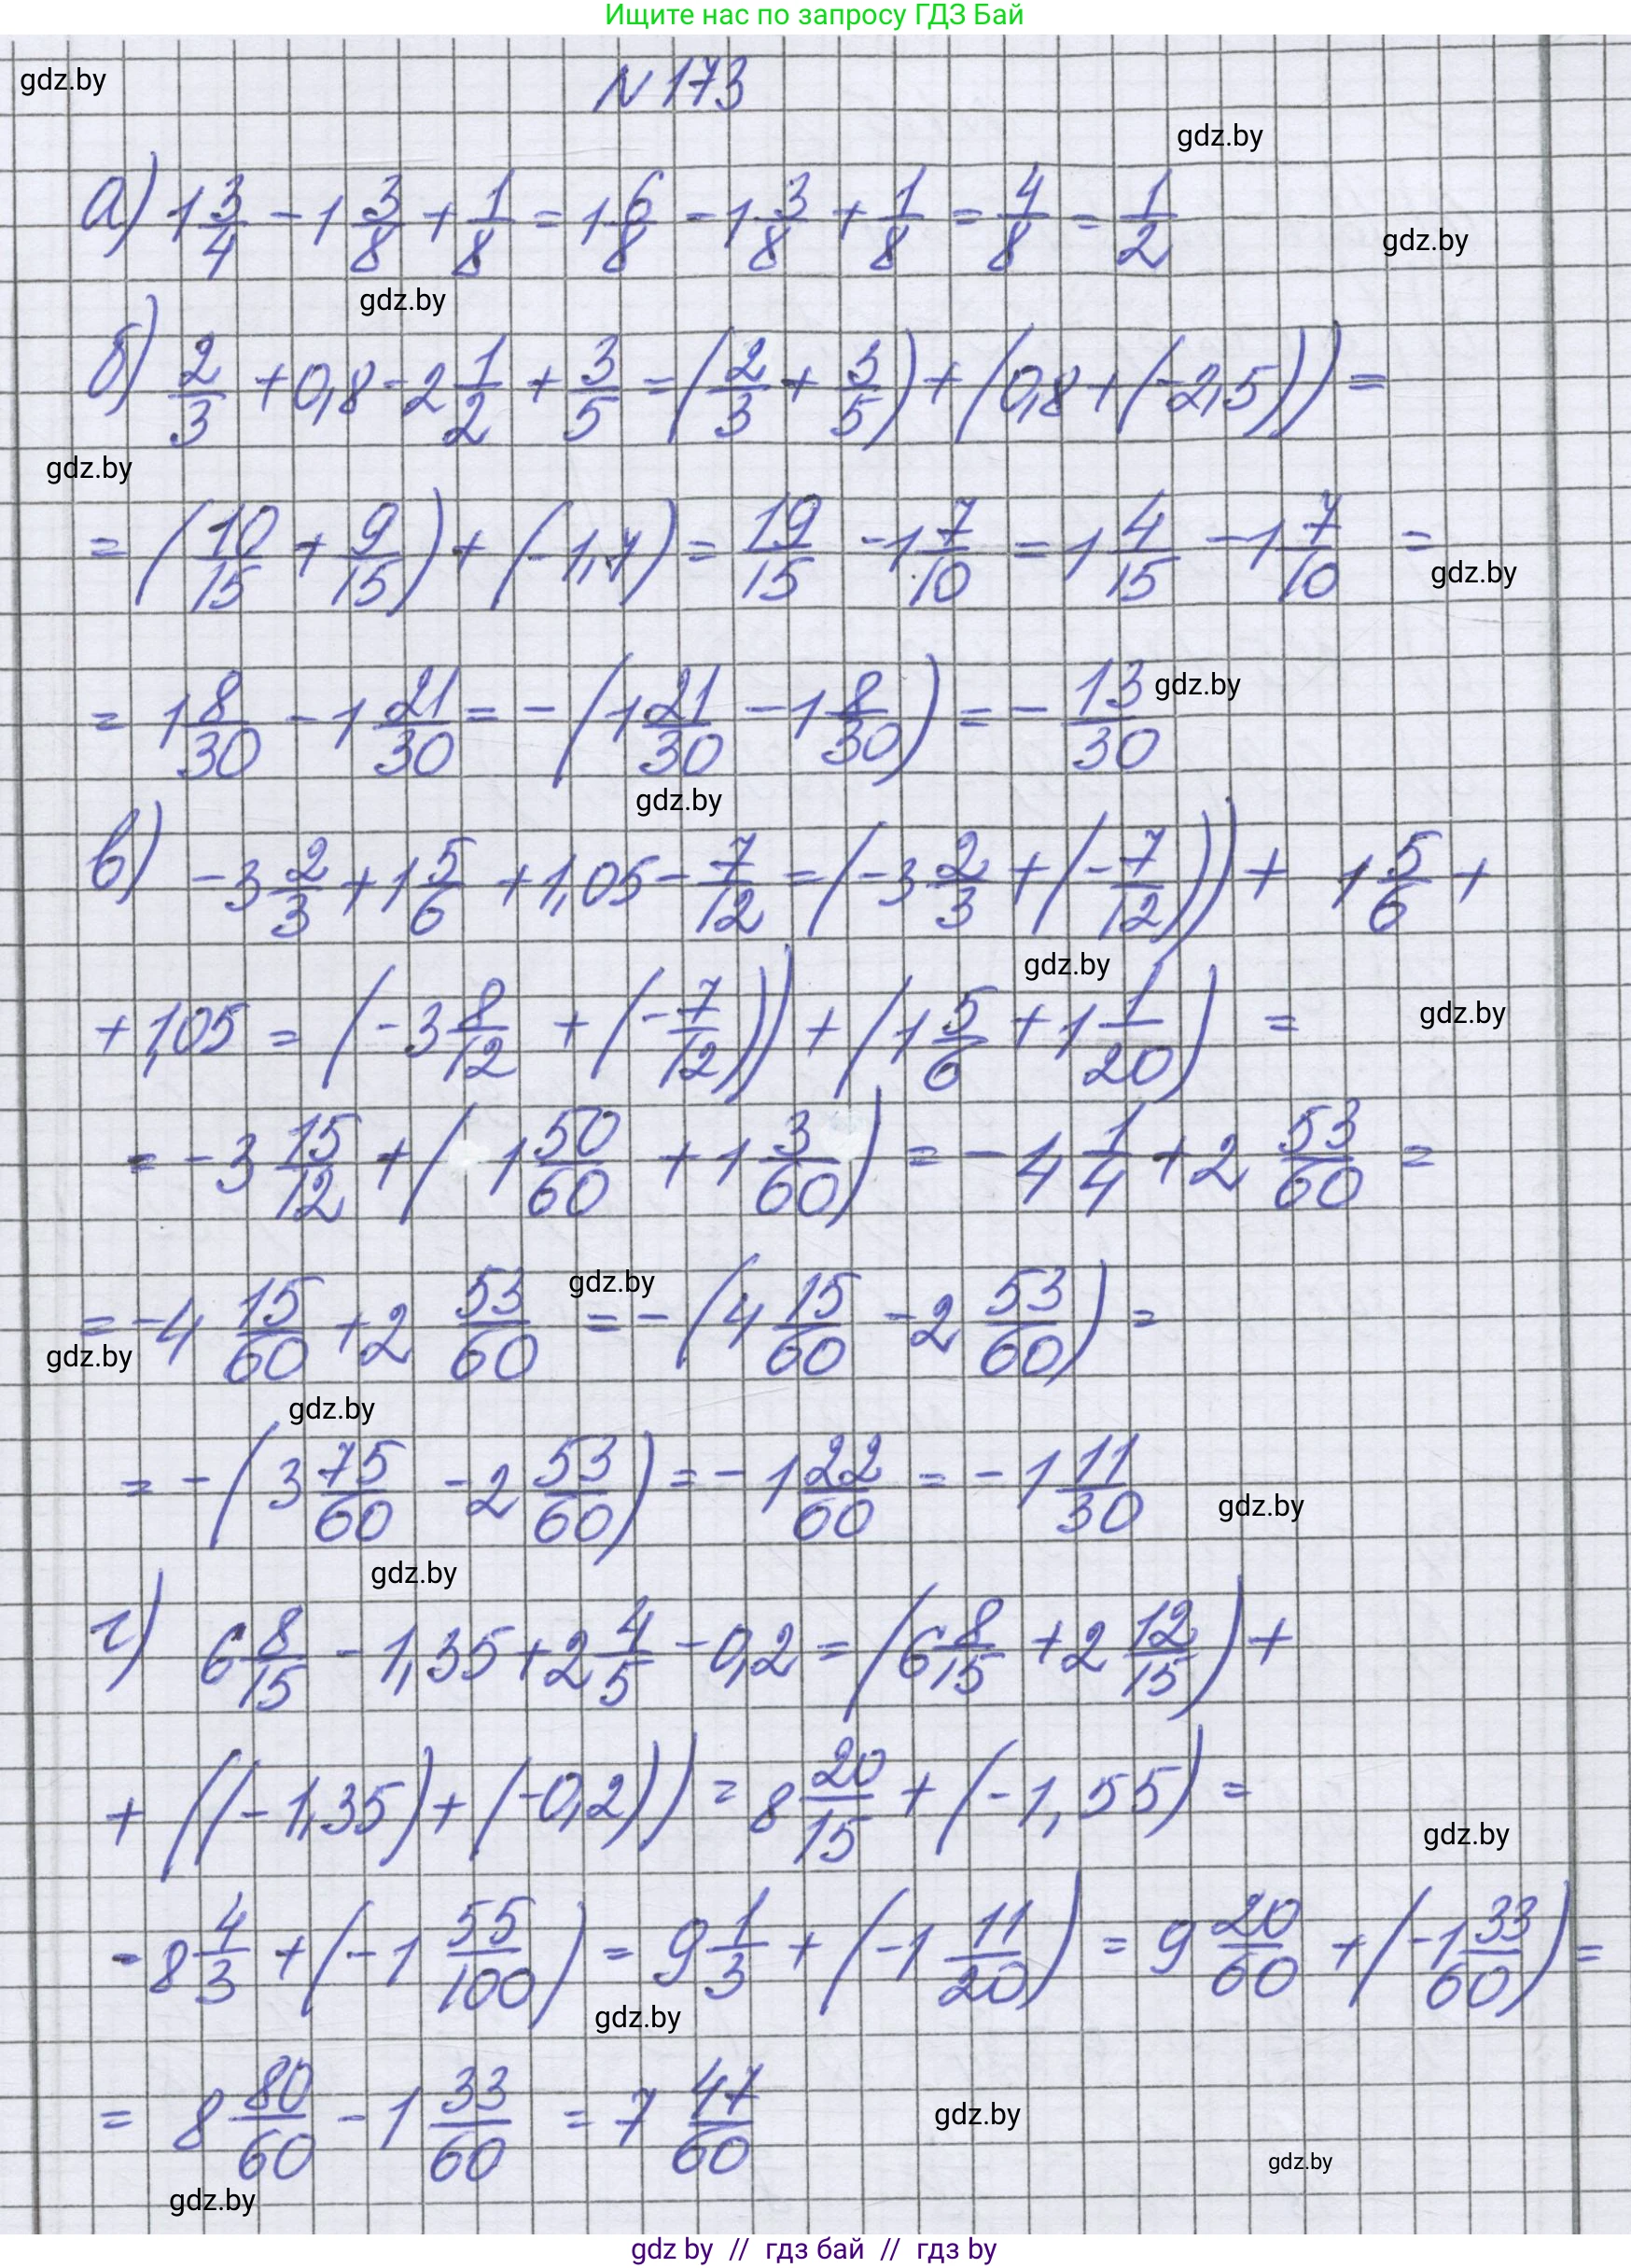 Ищите нас по запросу ГДЗ Бай
gdz.by
N 173
gdz.by
а) 1 3/4 - 1 3/8 + 1/8 = 1 6/8 - 1 3/8 + 1/8 = 4/8 = 1/2
gdz.by
gdz.by
б) 2/3 + 0,8 - 2 1/2 + 3/5 = (2/3 + 3/5) + (0,8 + (-2,5)) =
gdz.by
= (10/15 + 9/15) + (-1,7) = 19/15 - 1 7/10 = 1 4/15 - 1 7/10 =
gdz.by
= 1 8/30 - 1 21/30 = - (1 21/30 - 1 8/30) = - 13/30
gdz.by
gdz.by
в) -3 2/3 + 1 5/6 + 1,05 - 7/12 = (-3 2/3 + (-7/12)) + 1 5/6 +
gdz.by
+ 1,05 = (-3 8/12 + (-7/12)) + (1 5/6 + 1 1/20) =
gdz.by
= -3 15/12 + (1 50/60 + 1 3/60) = -4 1/4 + 2 53/60 =
gdz.by
= -4 15/60 + 2 53/60 = - (4 15/60 - 2 53/60) =
gdz.by
gdz.by
= - (3 75/60 - 2 53/60) = - 1 22/60 = - 1 11/30
gdz.by
gdz.by
г) 6 8/15 - 1,35 + 2 4/5 - 0,2 = (6 8/15 + 2 12/15) +
+ ((-1,35) + (-0,2)) = 8 20/15 + (-1,55) =
gdz.by
= 8 4/3 + (-1 55/100) = 9 1/3 + (-1 11/20) = 9 20/60 + (-1 33/60) =
gdz.by
= 8 80/60 - 1 33/60 = 7 47/60
gdz.by
gdz.by
gdz.by
gdz by // гдз бай // гдз by